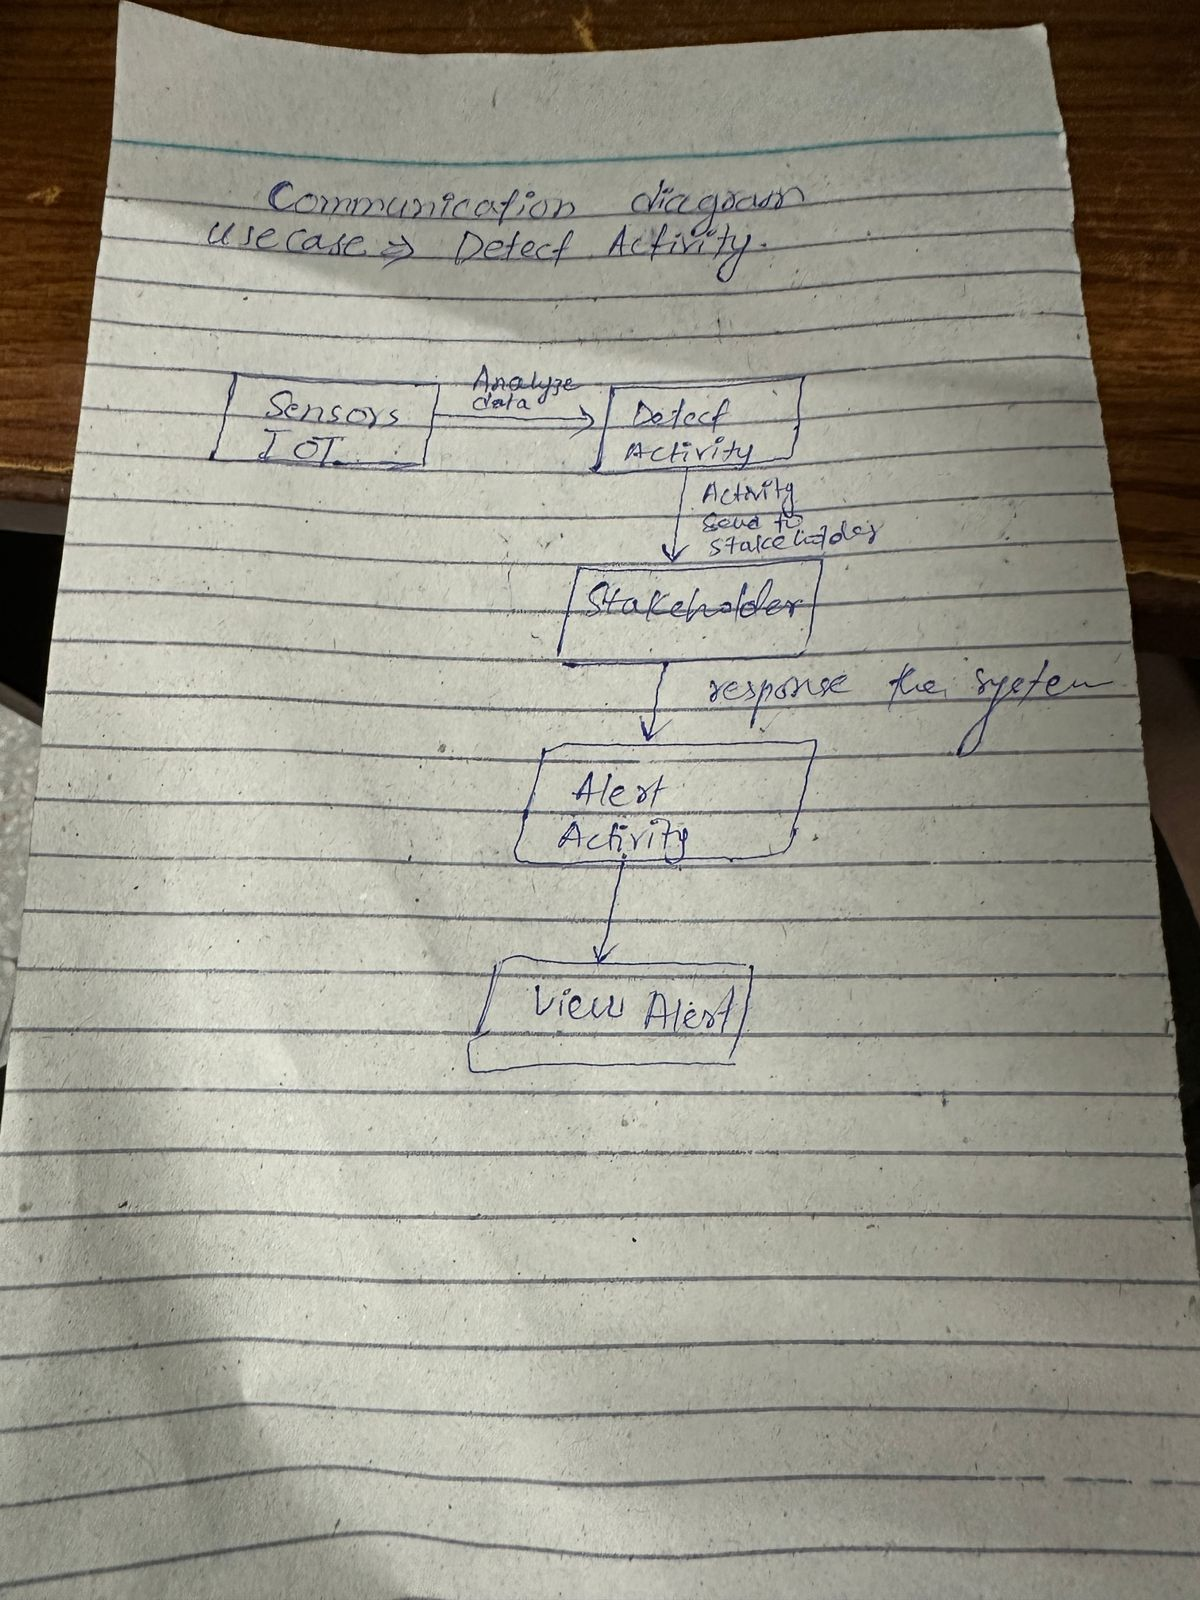 Communication diagram
Usecase ⇒ Detect Activity.
Sensors
IOT
Analyze
data
Detect
Activity
Activity
Send to
Stakeholder
Stakeholder
response the system
Alert
Activity
View Alert